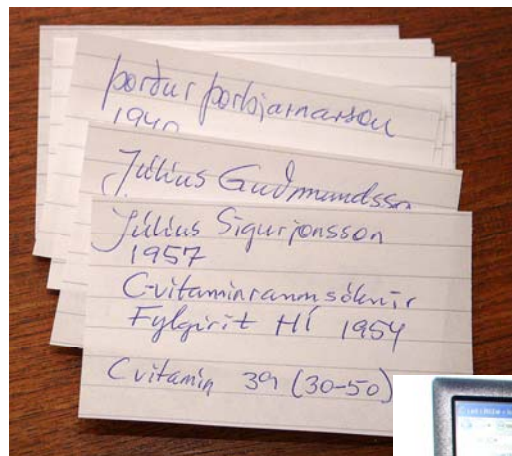 Þorður Þorbjarnarson
1940
Júlíus Guðmundsson
Júlíus Sigurjonsson
1957
C-vitaminrannsóknir
Fylgirit HÍ 1954
C vitamin 39 (30-50)